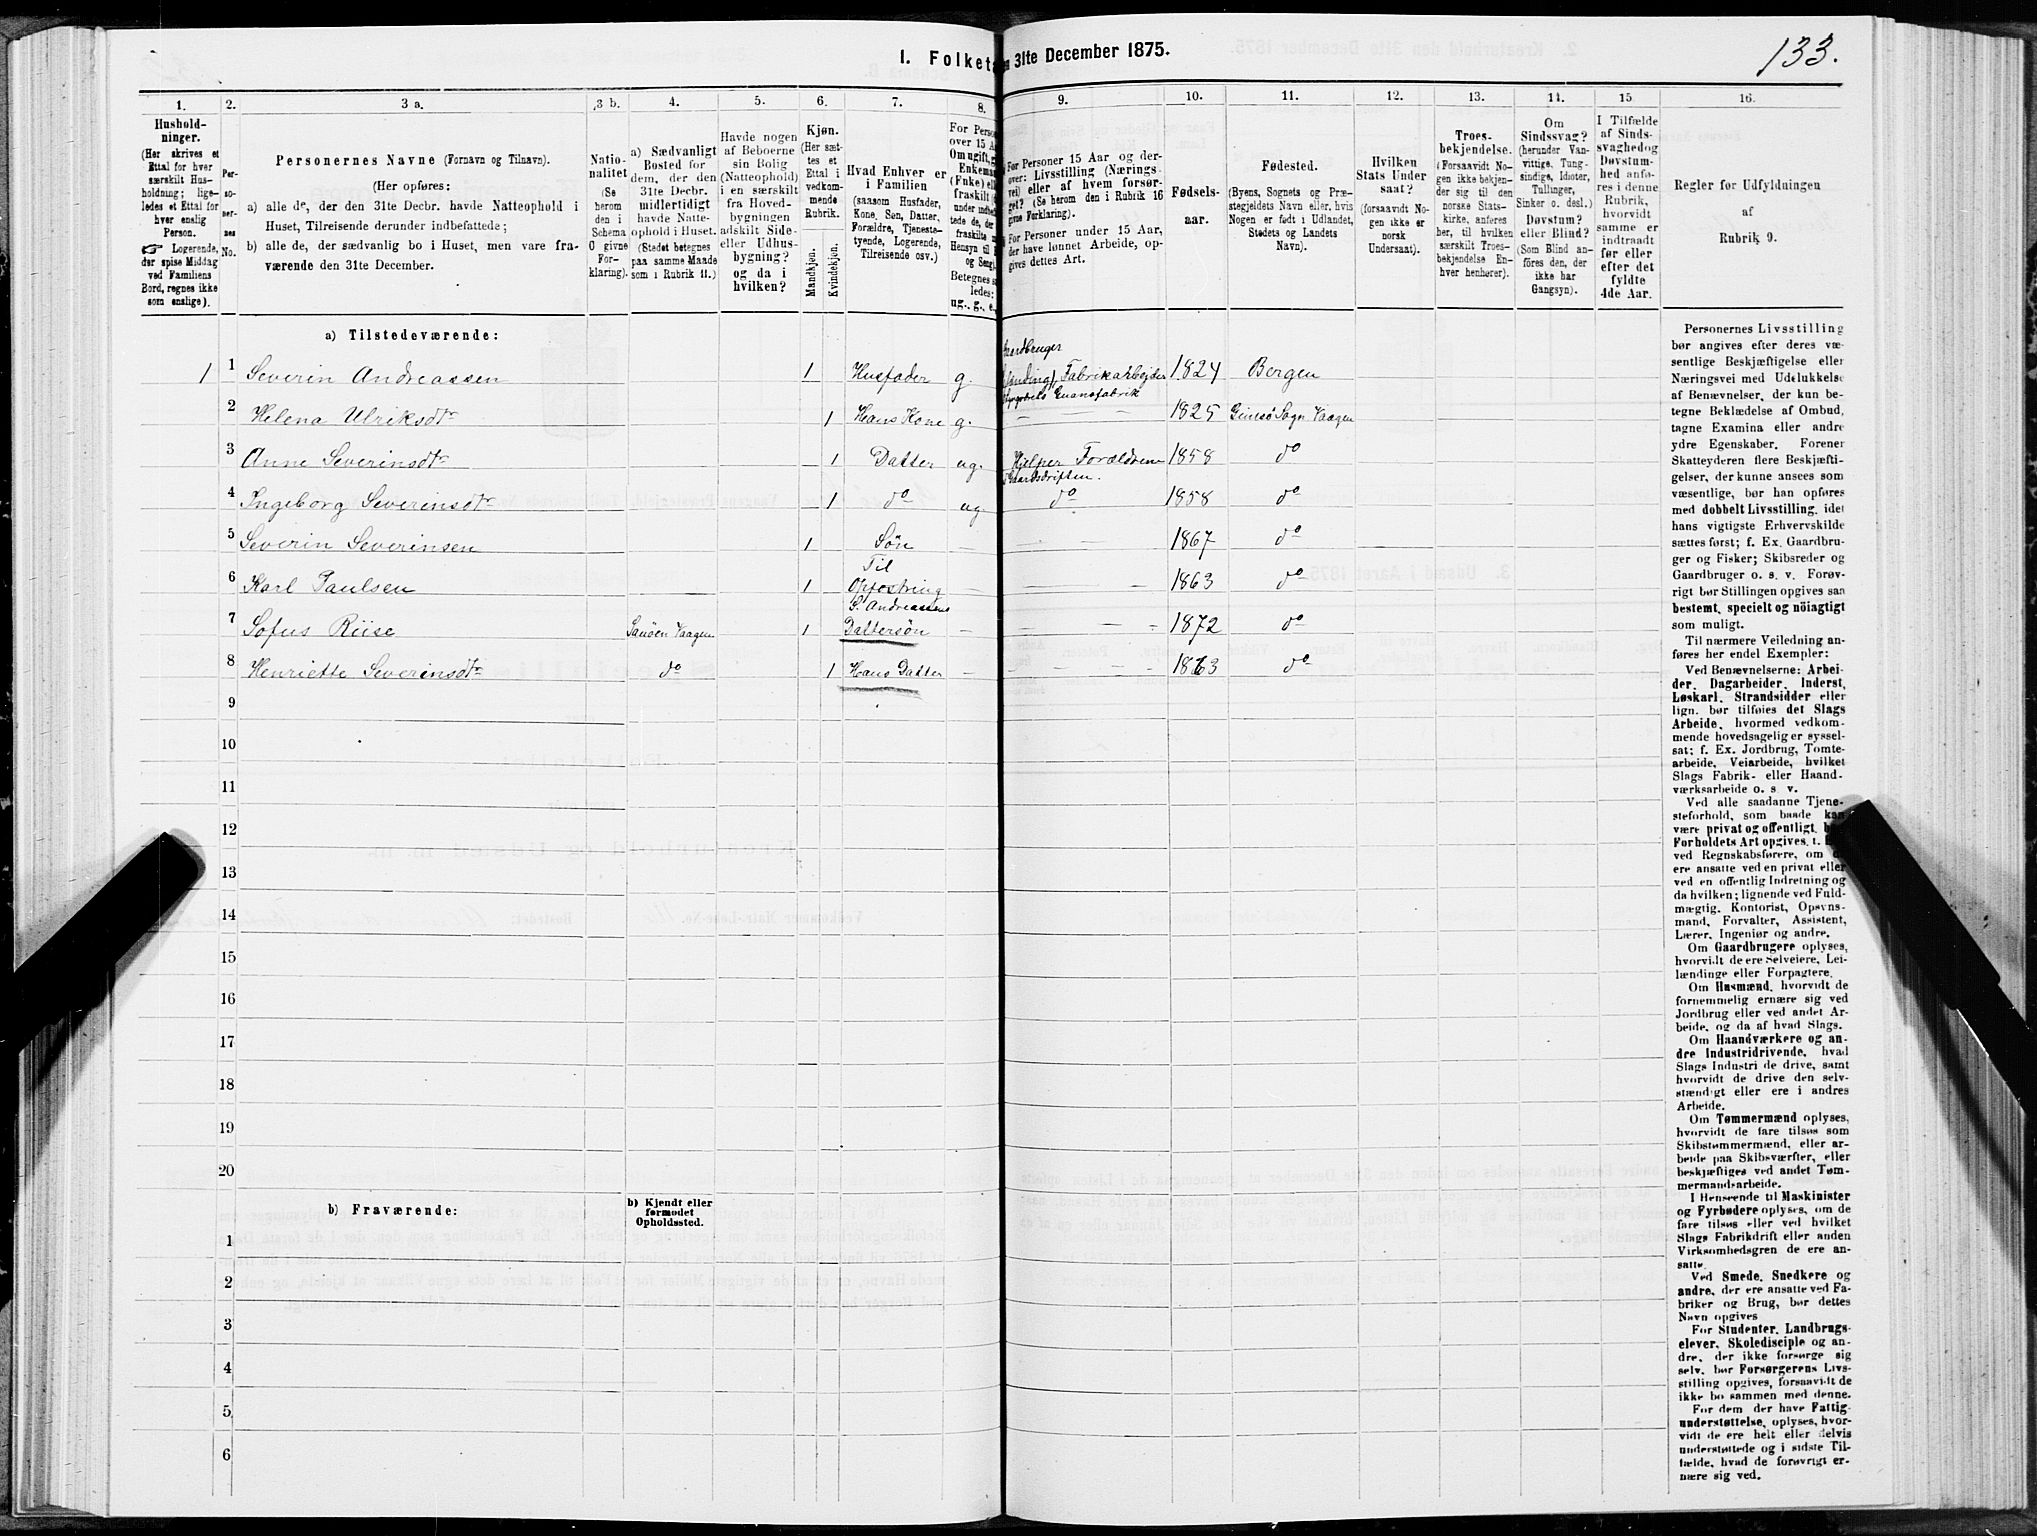 133.
I. Folket
31te December 1875.
1.
2.
3 a.
3 b.
4.
5.
6.
7.
8.
9.
10.
11.
12.
13.
14.
15
16.
Hushold-
ninger.
(Her skrives et
Ettal for hver
særskilt Hus-
holdning; lige-
ledes et Ettal for
hver enslig
Person.
☞ Logerende,
der spise Middag
ved Familiens
Bord, regnes ikke
som enslige).
Per-
so-
ner-
nes
No.
Personernes Navne (Fornavn og Tilnavn).
(Her opføres:
a) alle de, der den 31te Decbr. havde Natteophold i
Huset, Tilreisende derunder indbefattede;
b) alle de, der sædvanlig bo i Huset, men vare fra-
værende den 31te December.
Natio-
nalitet
(Se
herom
den i
Schema
O givne
For-
klaring).
a) Sædvanligt
Bosted for
dem, der den
31te Decbr.
midlertidigt
havde Natte-
ophold i Huset.
(Stedet betegnes
paa samme Maade
som i Rubrik 11.)
Havde nogen
af Beboerne
sin Bolig
(Natteophold)
i en særskilt
fra Hoved-
bygningen
adskilt Side-
eller Udhus-
bygning?
og da i
hvilken?
Kjøn.
(Her sæt-
tes et
Ettal i
vedkom-
mende
Rubrik.
Mandkjøn.
Kvindekjøn.
Hvad Enhver er
i Familien
(saasom Husfader,
Kone, Søn, Datter,
Forældre, Tjeneste-
tyende, Logerende,
Tilreisende osv.)
For Perso
over 15 A
Om ugift, g
Enkema
(Fnke) el
fraskilt
under indbe
tede de, der
fraskilte
Hensyn til
og Seng).
Betegnes s
ledes:
ug., g., e.
For Personer 15 Aar og der-
over: Livsstilling (Nærings-
vei) eller af hvem forsør-
get? (Se herom den i Rubrik 16
givne Forklaring).
For Personer under 15 Aar,
der have lønnet Arbeide, op-
gives dettes Art.
Fødsels-
aar.
Fødested.
(Byens, Sognets og Præ-
stegjeldets Navn eller, hvis
Nogen er født i Udlandet,
Stedets og Landets
Navn).
Hvilken
Stats Under
saat?
(forsaavidt No-
gen ikke er
norsk
Undersaat).
Troes-
bekjendelse.
(Forsaavidt No-
gen ikke bekjen-
der sig til den
norske Stats-
kirke, anføres
her, til hvilken
særskilt Troes-
bekjendelse En-
hver henhører).
Om
Sindssvag?
(herunder Van-
vittige, Tung-
sindige, Idioter,
Tullinger,
Sinker o. desl.)
Døvstum?
eller Blind?
(Som Blind an-
føres den, der
ikke har
Gangsyn).
I Tilfælde
af Sinds-
svaghed og
Døvstum-
hed anfø-
res i denne
Rubrik,
hvorvidt
samme er
indtraadt
før eller
efter det
fyldte
4de Aar.
Regler for Udfyldningen
af
Rubrik 9.
a) Tilstedeværende:
1 1 Severin Andreassen 1 Husfader g. Gaardbruger
Fabrikarbejder 1824 Bergen
Guanofabrik
2 Helena Ulriksdtr 1 Hans Kone g. — — 1825 Gimsø Sogn Vaagen
3 Anne Severinsdtr 1 Datter ug. Hjelper Forældrene 1858 do
i Gaardsdriften.
4 Ingeborg Severinsdtr 1 do ug do 1858 do
5 Severin Severinsen 1 Søn — — — — 1867 do
6 Karl Paulsen 1 Til
Opfostring — — — — 1863 do
7 Sofus Riise Sanøen Vaagen 1 S. Andreassens
Dattersøn — — — — 1872 do
8 Henriette Severinsdtr do 1 Hans Datter — — — — 1863 do
9
10
11
12
13
14
15
16
17
18
19
20
b) Fraværende:
b) Kjendt eller
formodet
Opholdssted.
1
2
3
4
5
6
Personernes Livsstilling
bør angives efter deres væ-
sentlige Beskjæftigelse eller
Næringsvei med Udelukkelse
af Benævnelser, der kun be-
tegne Beklædelse af Ombud,
tagne Examina eller andre
ydre Egenskaber. Forener
Skatteyderen flere Beskjæfti-
gelser, der kunne ansees som
væsentlige, bør han opføres
med dobbelt Livsstilling, idet
hans vigtigste Erhvervskilde
sættes først; f. Ex. Gaardbru-
ger og Fisker; Skibsreder og
Gaardbruger o. s. v. Forøv-
rigt bør Stillingen opgives saa
bestemt, specielt og nöiagtigt
som muligt.
Til nærmere Veiledning an-
føres her endel Exempler:
Ved Benævnelserne: Arbei-
der, Dagarbeider, Inderst,
Løskarl, Strandsidder eller
lign. bør tilføies det Slags
Arbeide, hvormed vedkom-
mende hovedsagelig er syssel-
sat; f. Ex. Jordbrug, Tomte-
arbeide, Veiarbeide, hvilket
Slags Fabrik- eller Haand-
værksarbeide o. s. v.
Ved alle saadanne Tjene-
steforhold, som baade kan
være privat og offentligt, bør
Forholdets Art opgives, t.
ved Regnskabsførere, om
ere ansatte ved en privat eller
ved en offentlig Indretning og
da hvilken; lignende ved Fuld-
mægtig, Kontorist, Opsyns-
mand, Forvalter, Assistent,
Lærer, Ingeniør og andre.
Om Gaardbrugere oplyses,
hvorvidt de ere Selveiere, Lei-
lændinge eller Forpagtere.
Om Husmænd, hvorvidt de
fornemmelig ernære sig ved
Jordbrug eller ved andet Ar-
beide, og da af hvad Slags.
Om Haandværkere og an-
dre Industridrivende, hvad
Slags Industri de drive, samt
hvorvidt de drive den selv-
stændigt eller ere i andres
Arbeide.
Om Tømmermænd oplyses,
hvorvidt de fare tilsøs som
Skibstømmermænd, eller ar-
beide paa Skibsværfter, eller
beskjæftiges ved andet Tøm-
mermandsarbeide.
I Henseende til Maskinister
og Fyrbødere oplyses, om de
fare tilsøs eller ved hvilket
Slags Fabrikdrift eller anden
Virksomhedsgren de ere an-
satte.
Ved Smede, Snedkere og
andre, der ere ansatte ved Fa-
briker og Brug, bør dettes
Navn opgives
For Studenter, Landbrugs-
elever, Skoledisciple og an-
dre, der ikke forsørge sig
selv, bør Forsørgerens Livs-
stilling opgives, forsaavidt de
ikke bo sammen med denne.
For dem, der have Fattig-
understøttelse, oplyses, hvor-
vidt de ere helt eller delvis
understøttede og i sidste Til-
fælde, hvad de forøvrigt er-
nære sig ved.